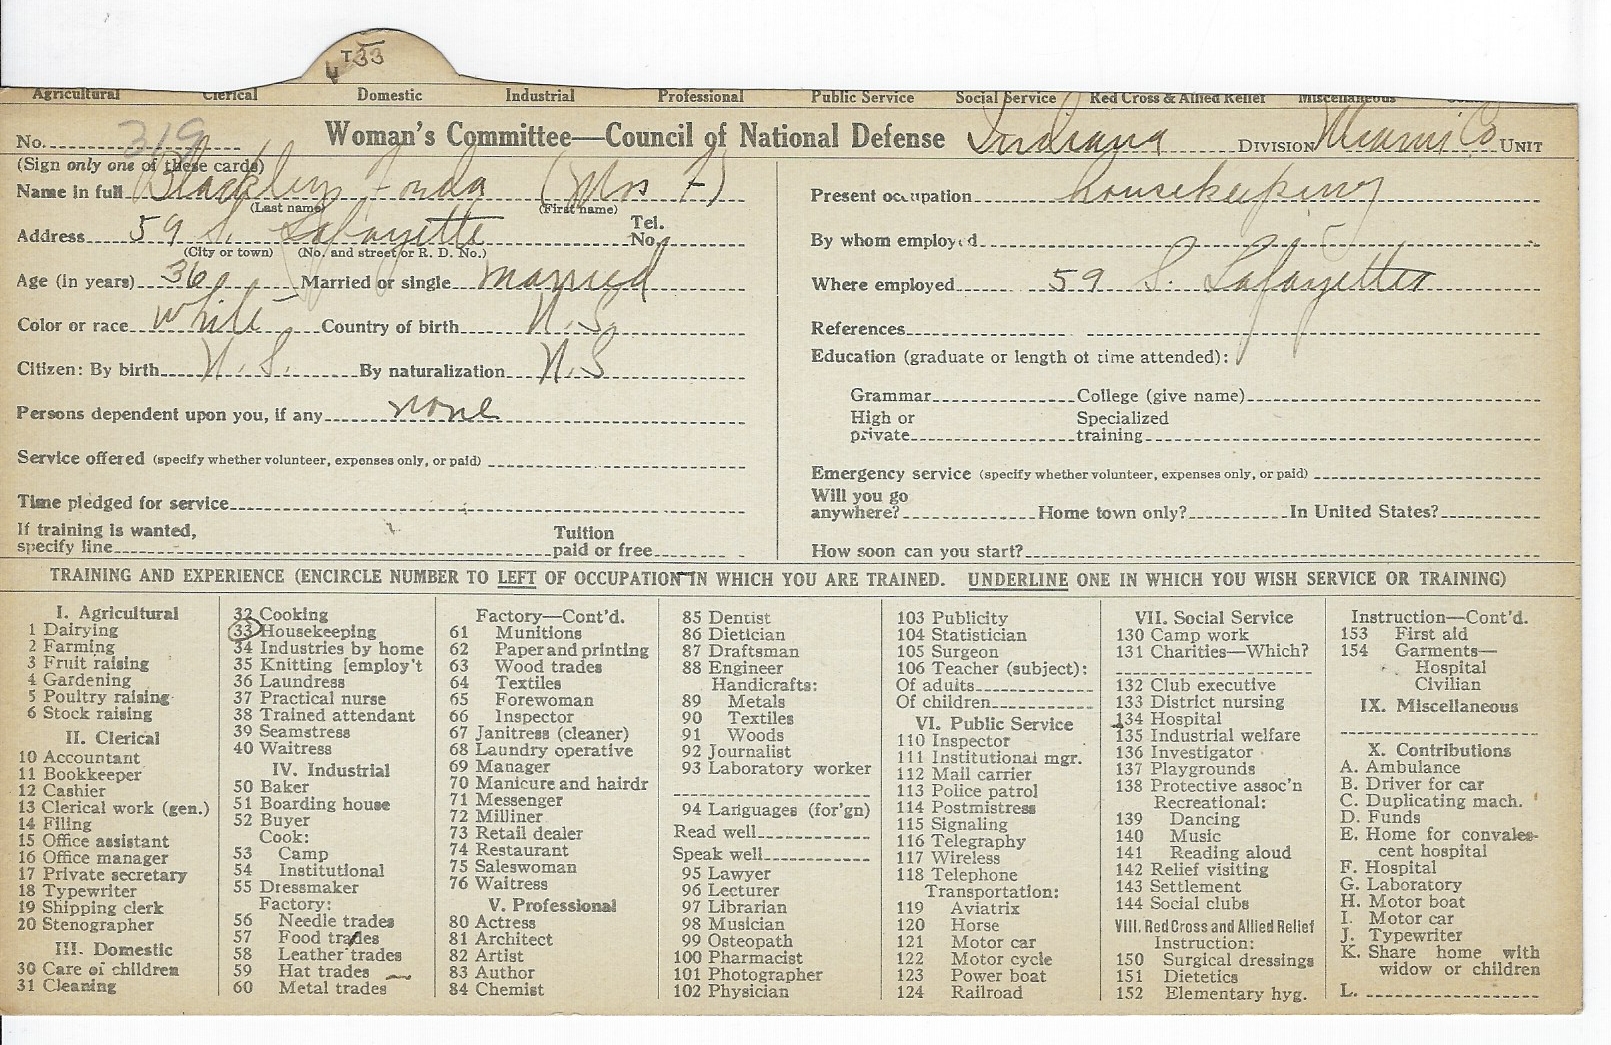 T33
Agricultural Clerical Domestic Industrial Professional Public Service Social Service Red Cross & Allied Relief Miscellaneous
No. 319 Woman's Committee—Council of National Defense Indiana DIVISION Miami Co UNIT
(Sign only one of these cards)
Name in full Blackley Fonda (Mrs F)
(Last name) (First name)
Address 59 S. Lafayette Tel. No.
(City or town) (No. and street or R. D. No.)
Age (in years) 36 Married or single married
Color or race White Country of birth U.S.
Citizen: By birth U.S. By naturalization U.S
Persons dependent upon you, if any none
Service offered (specify whether volunteer, expenses only, or paid)
Time pledged for service
If training is wanted, specify line Tuition paid or free
Present occupation housekeeping
By whom employed
Where employed 59 S. Lafayette
References
Education (graduate or length of time attended):
Grammar College (give name)
High or private Specialized training
Emergency service (specify whether volunteer, expenses only, or paid)
Will you go anywhere? Home town only? In United States?
How soon can you start?
TRAINING AND EXPERIENCE (ENCIRCLE NUMBER TO LEFT OF OCCUPATION IN WHICH YOU ARE TRAINED. UNDERLINE ONE IN WHICH YOU WISH SERVICE OR TRAINING)
I. Agricultural
1 Dairying
2 Farming
3 Fruit raising
4 Gardening
5 Poultry raising
6 Stock raising
II. Clerical
10 Accountant
11 Bookkeeper
12 Cashier
13 Clerical work (gen.)
14 Filing
15 Office assistant
16 Office manager
17 Private secretary
18 Typewriter
19 Shipping clerk
20 Stenographer
III. Domestic
30 Care of children
31 Cleaning
32 Cooking
33 Housekeeping
34 Industries by home
35 Knitting [employ't
36 Laundress
37 Practical nurse
38 Trained attendant
39 Seamstress
40 Waitress
IV. Industrial
50 Baker
51 Boarding house
52 Buyer
Cook:
53 Camp
54 Institutional
55 Dressmaker
Factory:
56 Needle trades
57 Food trades
58 Leather trades
59 Hat trades
60 Metal trades
Factory—Cont'd.
61 Munitions
62 Paper and printing
63 Wood trades
64 Textiles
65 Forewoman
66 Inspector
67 Janitress (cleaner)
68 Laundry operative
69 Manager
70 Manicure and hairdr
71 Messenger
72 Milliner
73 Retail dealer
74 Restaurant
75 Saleswoman
76 Waitress
V. Professional
80 Actress
81 Architect
82 Artist
83 Author
84 Chemist
85 Dentist
86 Dietician
87 Draftsman
88 Engineer
Handicrafts:
89 Metals
90 Textiles
91 Woods
92 Journalist
93 Laboratory worker
94 Languages (for'gn)
Read well
Speak well
95 Lawyer
96 Lecturer
97 Librarian
98 Musician
99 Osteopath
100 Pharmacist
101 Photographer
102 Physician
103 Publicity
104 Statistician
105 Surgeon
106 Teacher (subject):
Of adults
Of children
VI. Public Service
110 Inspector
111 Institutional mgr.
112 Mail carrier
113 Police patrol
114 Postmistress
115 Signaling
116 Telegraphy
117 Wireless
118 Telephone
Transportation:
119 Aviatrix
120 Horse
121 Motor car
122 Motor cycle
123 Power boat
124 Railroad
VII. Social Service
130 Camp work
131 Charities—Which?
132 Club executive
133 District nursing
134 Hospital
135 Industrial welfare
136 Investigator
137 Playgrounds
138 Protective assoc'n
Recreational:
139 Dancing
140 Music
141 Reading aloud
142 Relief visiting
143 Settlement
144 Social clubs
VIII. Red Cross and Allied Relief
Instruction:
150 Surgical dressings
151 Dietetics
152 Elementary hyg.
Instruction—Cont'd.
153 First aid
154 Garments—
Hospital
Civilian
IX. Miscellaneous
X. Contributions
A. Ambulance
B. Driver for car
C. Duplicating mach.
D. Funds
E. Home for convales-
cent hospital
F. Hospital
G. Laboratory
H. Motor boat
I. Motor car
J. Typewriter
K. Share home with
widow or children
L.